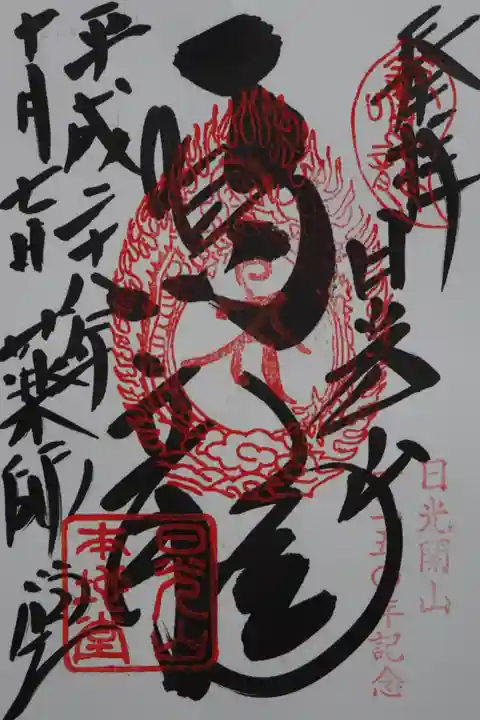 奉拝
日光山
日光開山
一二五〇年記念
平成二十八年 薬師堂
十月七日
日光山
本地堂